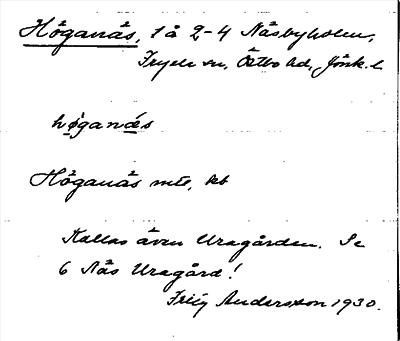 Höganäs, 1 å 2-4 Näsbyholm,
Fryele sn, Östbo hd, Jönk. l.
høganǽs
Höganäs mte, kb
Kallas även Uragården. Se
6 Näs Uragård!
Andersson 1930.